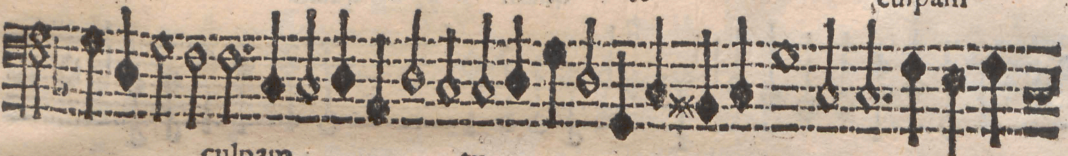 culpam
culpam